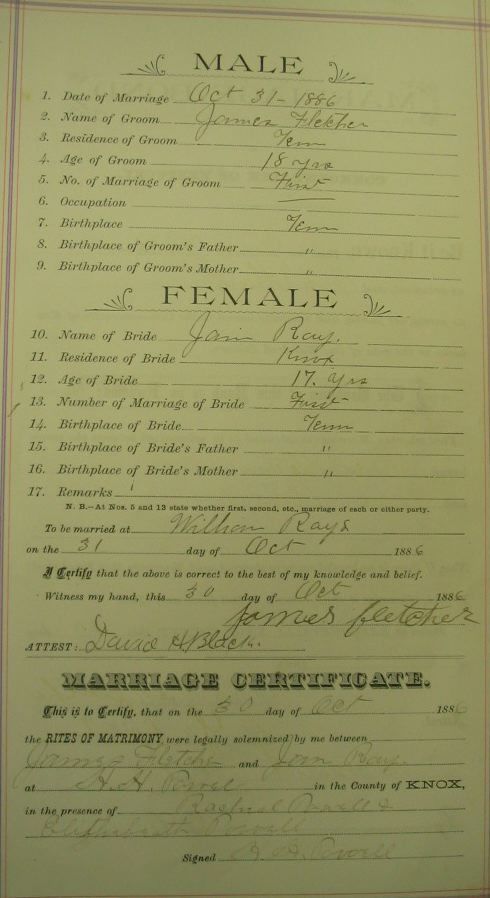 MALE
1. Date of Marriage Oct 31 - 1886
2. Name of Groom James Fletcher
3. Residence of Groom Tenn
4. Age of Groom 18 yrs
5. No. of Marriage of Groom First
6. Occupation
7. Birthplace Tenn
8. Birthplace of Groom's Father "
9. Birthplace of Groom's Mother "
FEMALE
10. Name of Bride Jain Ray.
11. Residence of Bride Knox
12. Age of Bride 17. yrs
13. Number of Marriage of Bride First
14. Birthplace of Bride Tenn
15. Birthplace of Bride's Father "
16. Birthplace of Bride's Mother "
17. Remarks
N. B.—At Nos. 5 and 13 state whether first, second, etc., marriage of each or either party.
To be married at William Rays
on the 31 day of Oct 1886
I Certify that the above is correct to the best of my knowledge and belief.
Witness my hand, this 30 day of Oct 1886
James Fletcher
ATTEST: David H Black.
MARRIAGE CERTIFICATE.
This is to Certify, that on the 30 day of Oct 1886
the RITES OF MATRIMONY were legally solemnized by me between
James Fletcher and Jain Ray.
at H. H. Powell in the County of KNOX,
in the presence of Rachel Powell &
Powell
Signed H. H. Powell